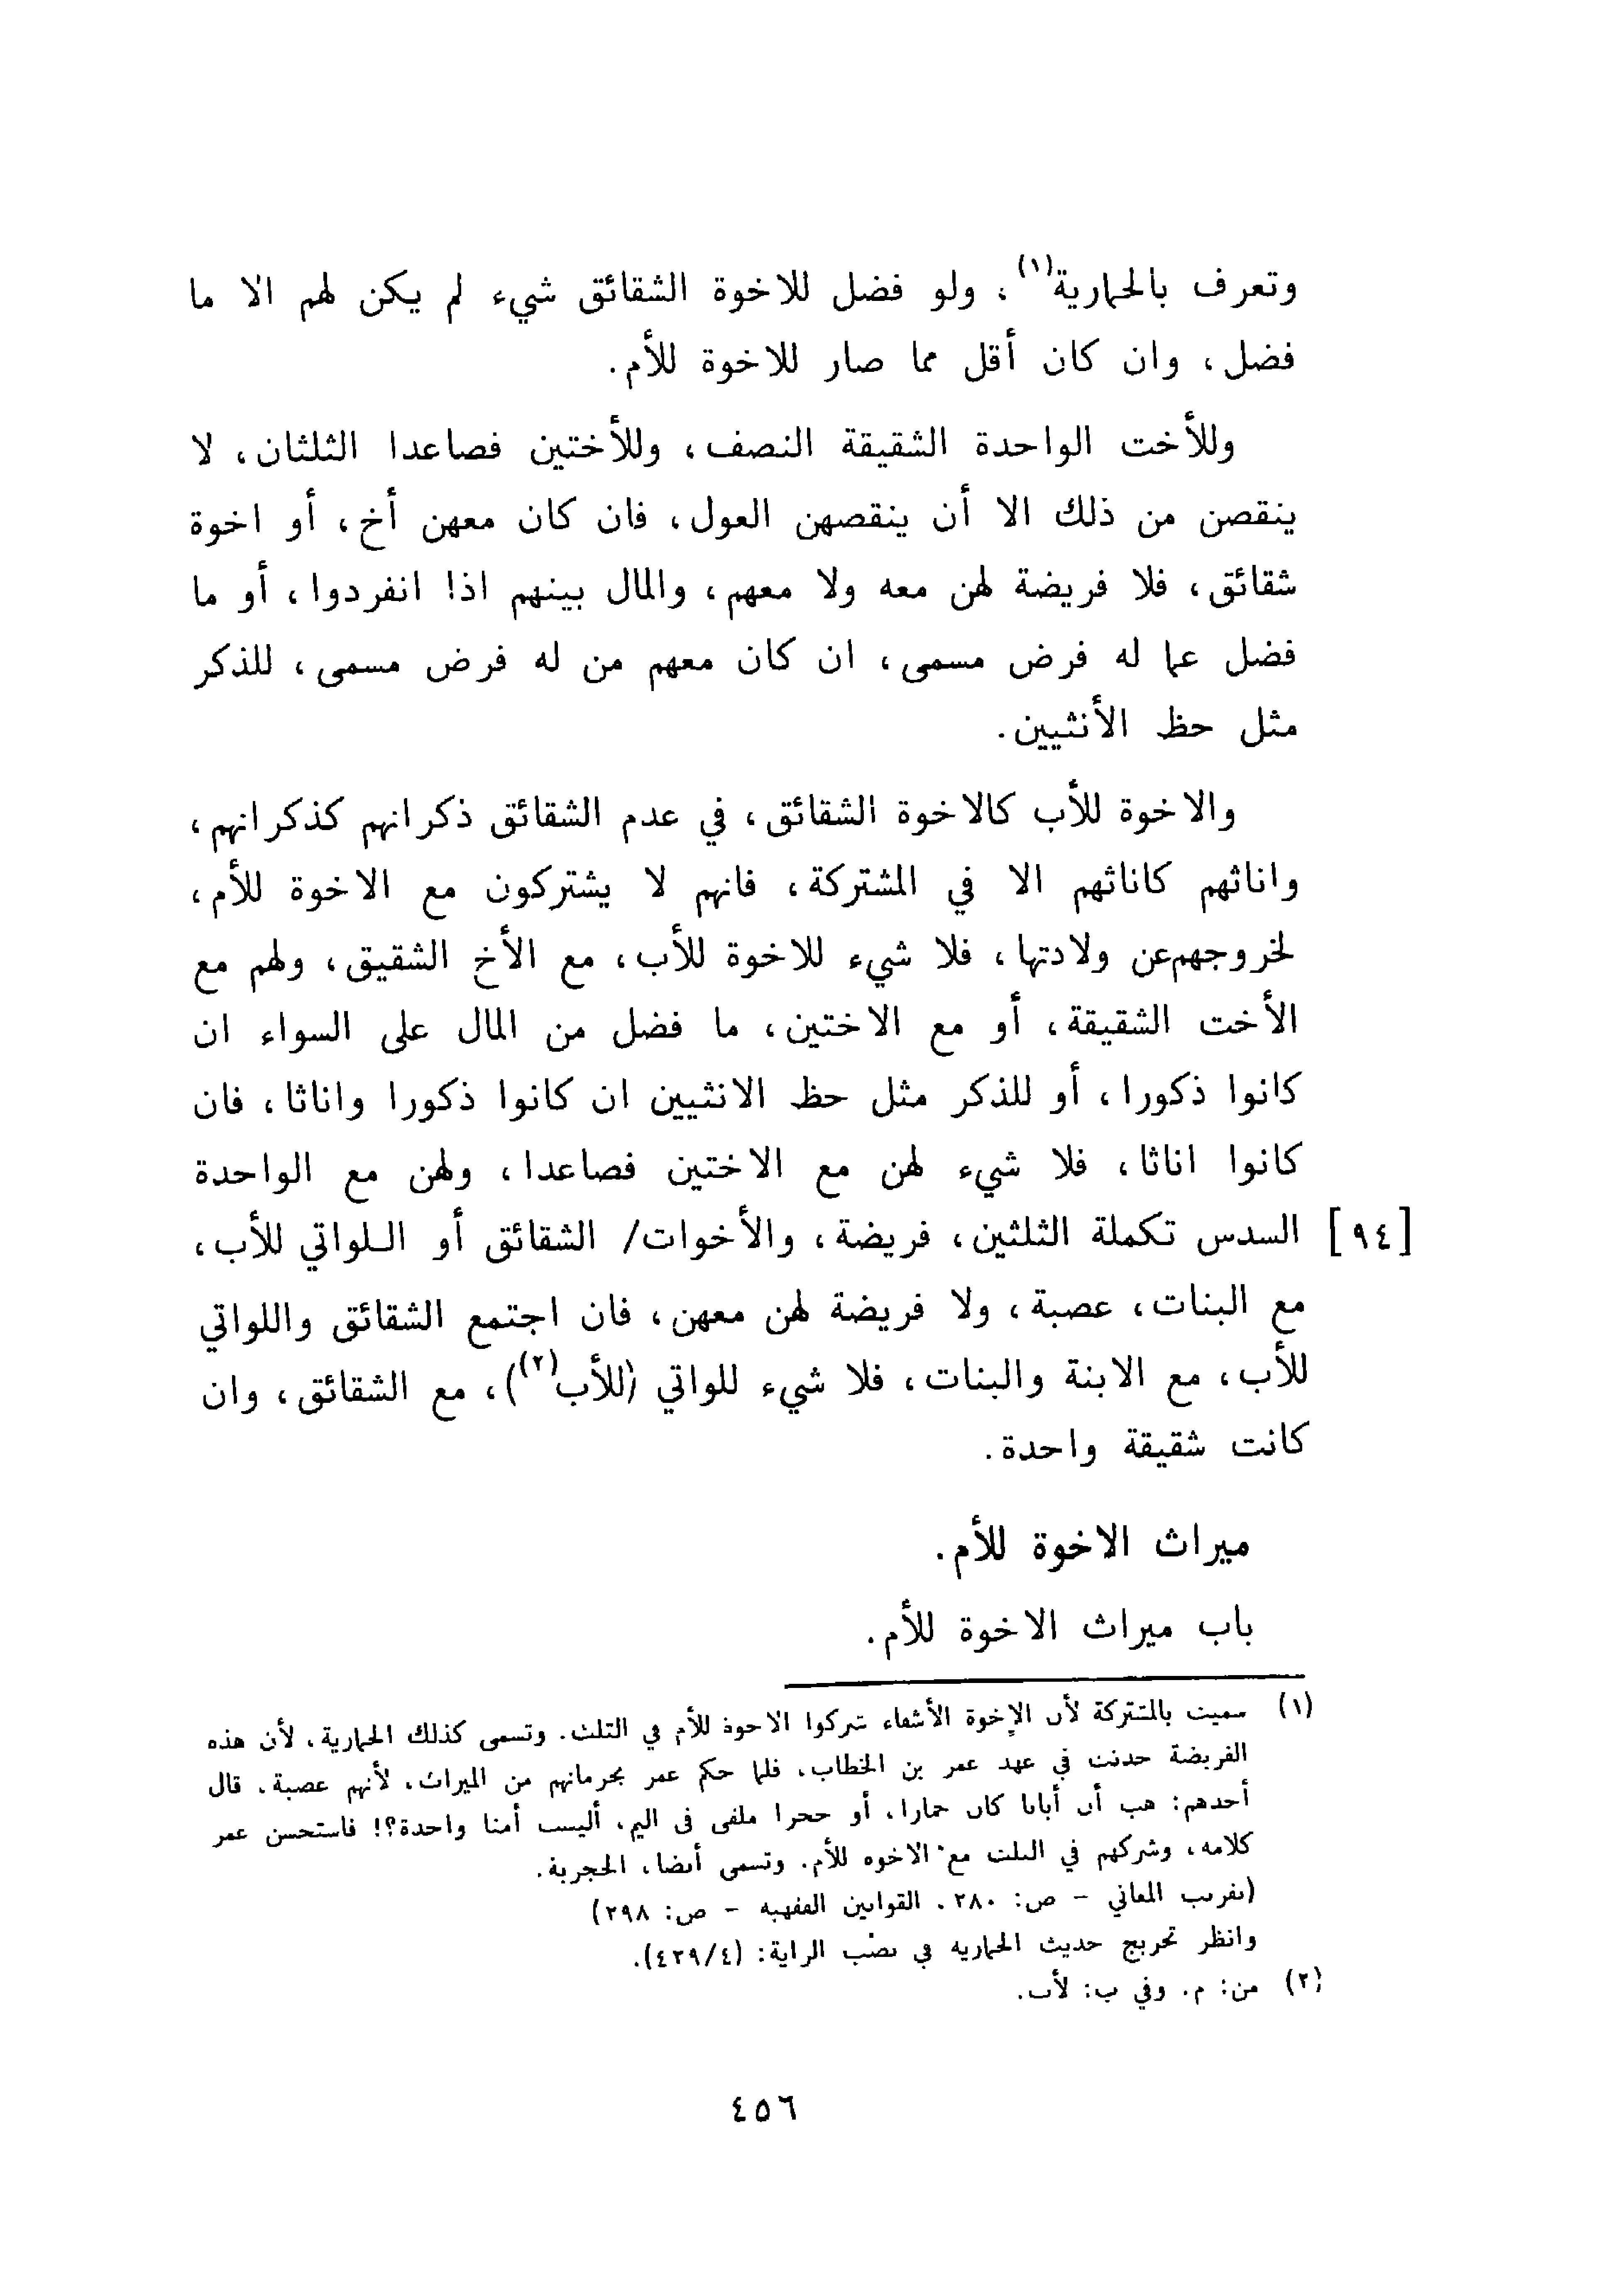 وتعرف بالحمارية(١)، ولو فضل للاخوة الشقائق شيء لم يكن لهم الا ما
فضل، وان كان أقل مما صار للاخوة للأم.
وللأخت الواحدة الشقيقة النصف، وللأختين فصاعدا الثلثان، لا
ينقصن من ذلك الا أن ينقصهن العول، فان كان معهن أخ، أو اخوة
شقائق، فلا فريضة لهن معه ولا معهم، والمال بينهم اذا انفردوا، أو ما
فضل عما له فرض مسمى، ان كان معهم من له فرض مسمى، للذكر
مثل حظ الأنثيين.
والاخوة للأب كالاخوة الشقائق، في عدم الشقائق ذكرانهم كذكرانهم،
واناثهم كاناثهم الا في المشتركة، فانهم لا يشتركون مع الاخوة للأم،
لخروجهم عن ولادتها، فلا شيء للاخوة للأب، مع الأخ الشقيق، ولهم مع
الأخت الشقيقة، أو مع الاختين، ما فضل من المال على السواء ان
كانوا ذكورا، أو للذكر مثل حظ الانثيين ان كانوا ذكورا واناثا، فان
كانوا اناثا، فلا شيء لهن مع الاختين فصاعدا، ولهن مع الواحدة
[٩٤] السدس تكملة الثلثين، فريضة، والأخوات/ الشقائق أو اللواتي للأب،
مع البنات، عصبة، ولا فريضة لهن معهن، فان اجتمع الشقائق واللواتي
للأب، مع الابنة والبنات، فلا شيء للواتي (للأب(٢))، مع الشقائق، وان
كانت شقيقة واحدة.
ميراث الاخوة للأم.
باب ميراث الاخوة للأم.
(١) سميت بالمشتركة لأن الإخوة الأشقاء شركوا الاخوة للأم في الثلث. وتسمى كذلك الحمارية، لأن هذه
الفريضة حدثت في عهد عمر بن الخطاب، فلما حكم عمر بحرمانهم من الميراث، لأنهم عصبة، قال
أحدهم: هب أن أبانا كان حمارا، أو حجرا ملقى في اليم، أليست أمنا واحدة؟! فاستحسن عمر
كلامه، وشركهم في الثلث مع الاخوة للأم. وتسمى أيضا، الحجرية.
(تقريب المعاني - ص: ٢٨٠. القوانين الفقهية - ص: ٢٩٨)
وانظر تخريج حديث الحمارية في نصب الراية: (٤/٤٢٩).
(٢) من: م. وفي ب: لأب.
٤٥٦